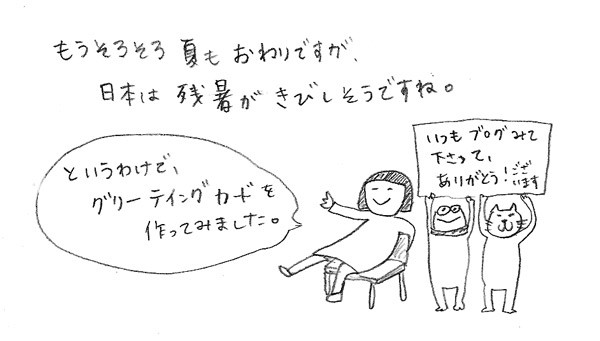 もうそろそろ 夏も おわりですが、
日本は 残暑が きびしそうですね。
というわけで、
グリーティングカードを
作ってみました。
いつも ブログみて
下さって、
ありがとう!ござ
います